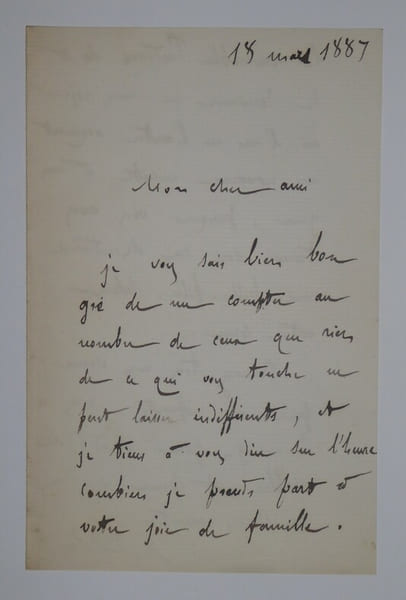 18 mars 1887
Mon cher ami
je vous sais bien bon
gré de me compter au
nombre de ceux que rien
de ce qui vous touche ne
peut laisser indifférents, et
je tiens à vous dire sur l'heure
combien je prends part à
votre joie de famille.